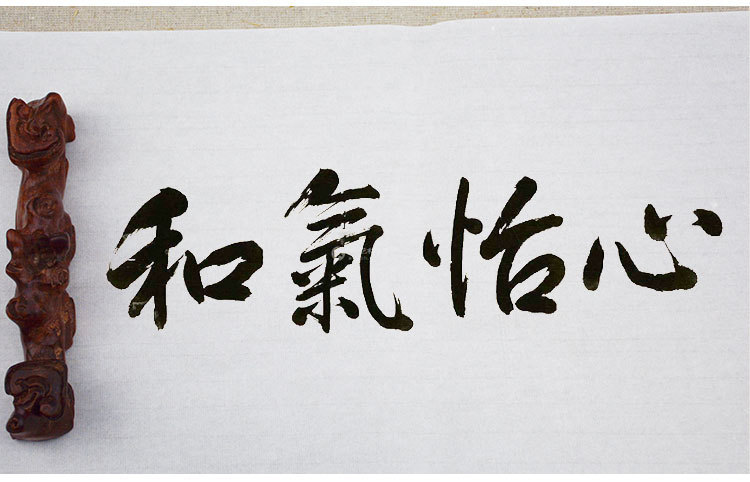 和氣怡心